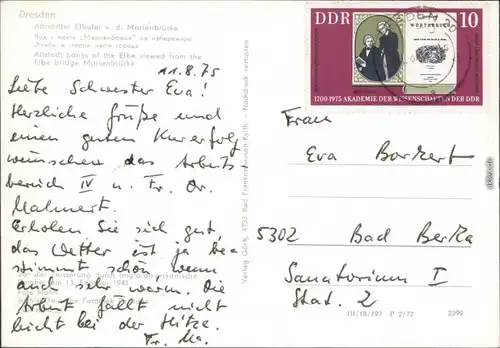 Dresden
Altstädter Elbufer v. d. Marienbrücke
Elbe bridge Marienbrücke
Altstadt banks of the Elbe viewed from the
11.8.75
Liebe Schwester Eva!
Herzliche Grüße und
einen guten Kurerfolg
wünschen das Arbeits-
bereich IV u. Fr. Dr.
Mahnert.
Erholen Sie sich gut,
das Wetter ist ja be-
stimmt schön wenn
auch sehr warm. Die
Arbeit fällt nicht
leicht bei der Hitze.
Fr. Ma.
Verlag Görlt, 4732 Bad Frankenhausen Kyffh. · Nachdruck verboten
DDR 10
WÖRTERBUCH
1700-1975 AKADEMIE DER WISSENSCHAFTEN DER DDR
Frau
Eva Borkert
5302 Bad Berka
Sanatorium I
Stat. 2
III/18/192 P 2/72 2299